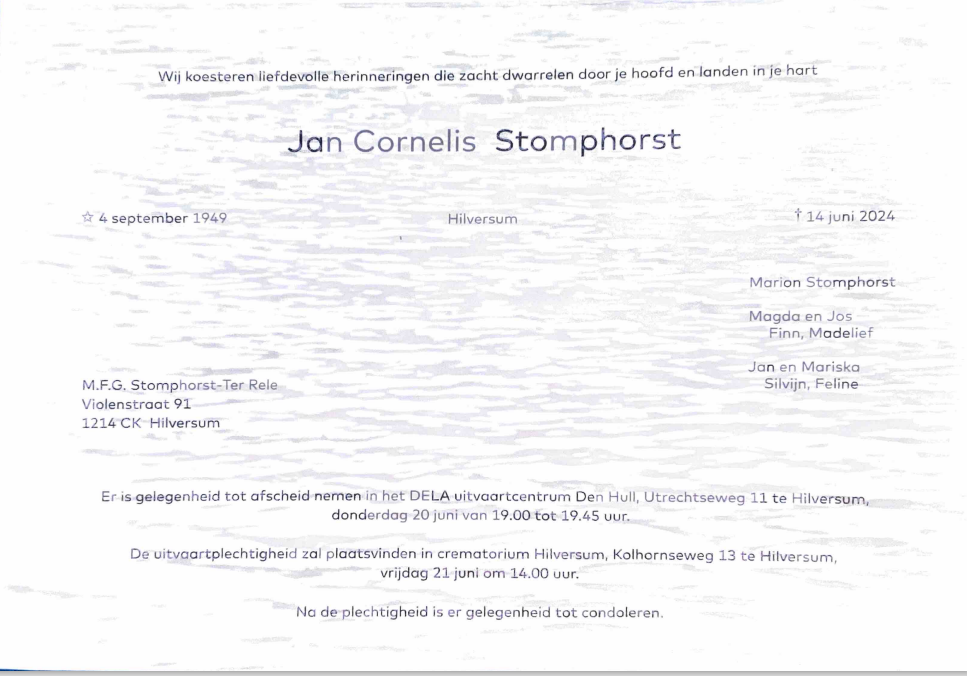 Wij koesteren liefdevolle herinneringen die zacht dwarrelen door je hoofd en landen in je hart
Jan Cornelis Stomphorst
☆ 4 september 1949 Hilversum † 14 juni 2024
Marion Stomphorst
Magda en Jos
Finn, Madelief
Jan en Mariska
Silvijn, Feline
M.F.G. Stomphorst-Ter Rele
Violenstraat 91
1214 CK Hilversum
Er is gelegenheid tot afscheid nemen in het DELA uitvaartcentrum Den Hull, Utrechtseweg 11 te Hilversum,
donderdag 20 juni van 19.00 tot 19.45 uur.
De uitvaartplechtigheid zal plaatsvinden in crematorium Hilversum, Kolhornseweg 13 te Hilversum,
vrijdag 21 juni om 14.00 uur.
Na de plechtigheid is er gelegenheid tot condoleren.